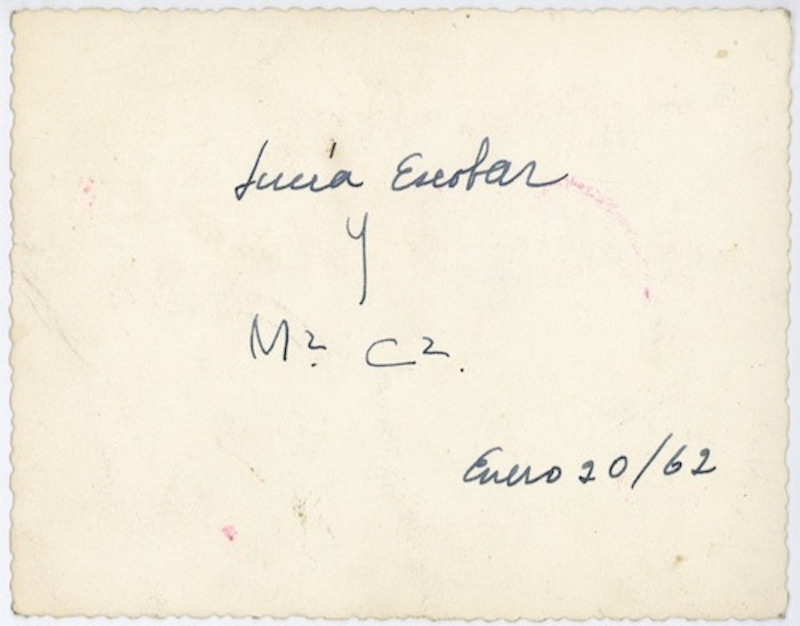 Lucía Escobar
y
Mª. Cª.
Enero 20/62